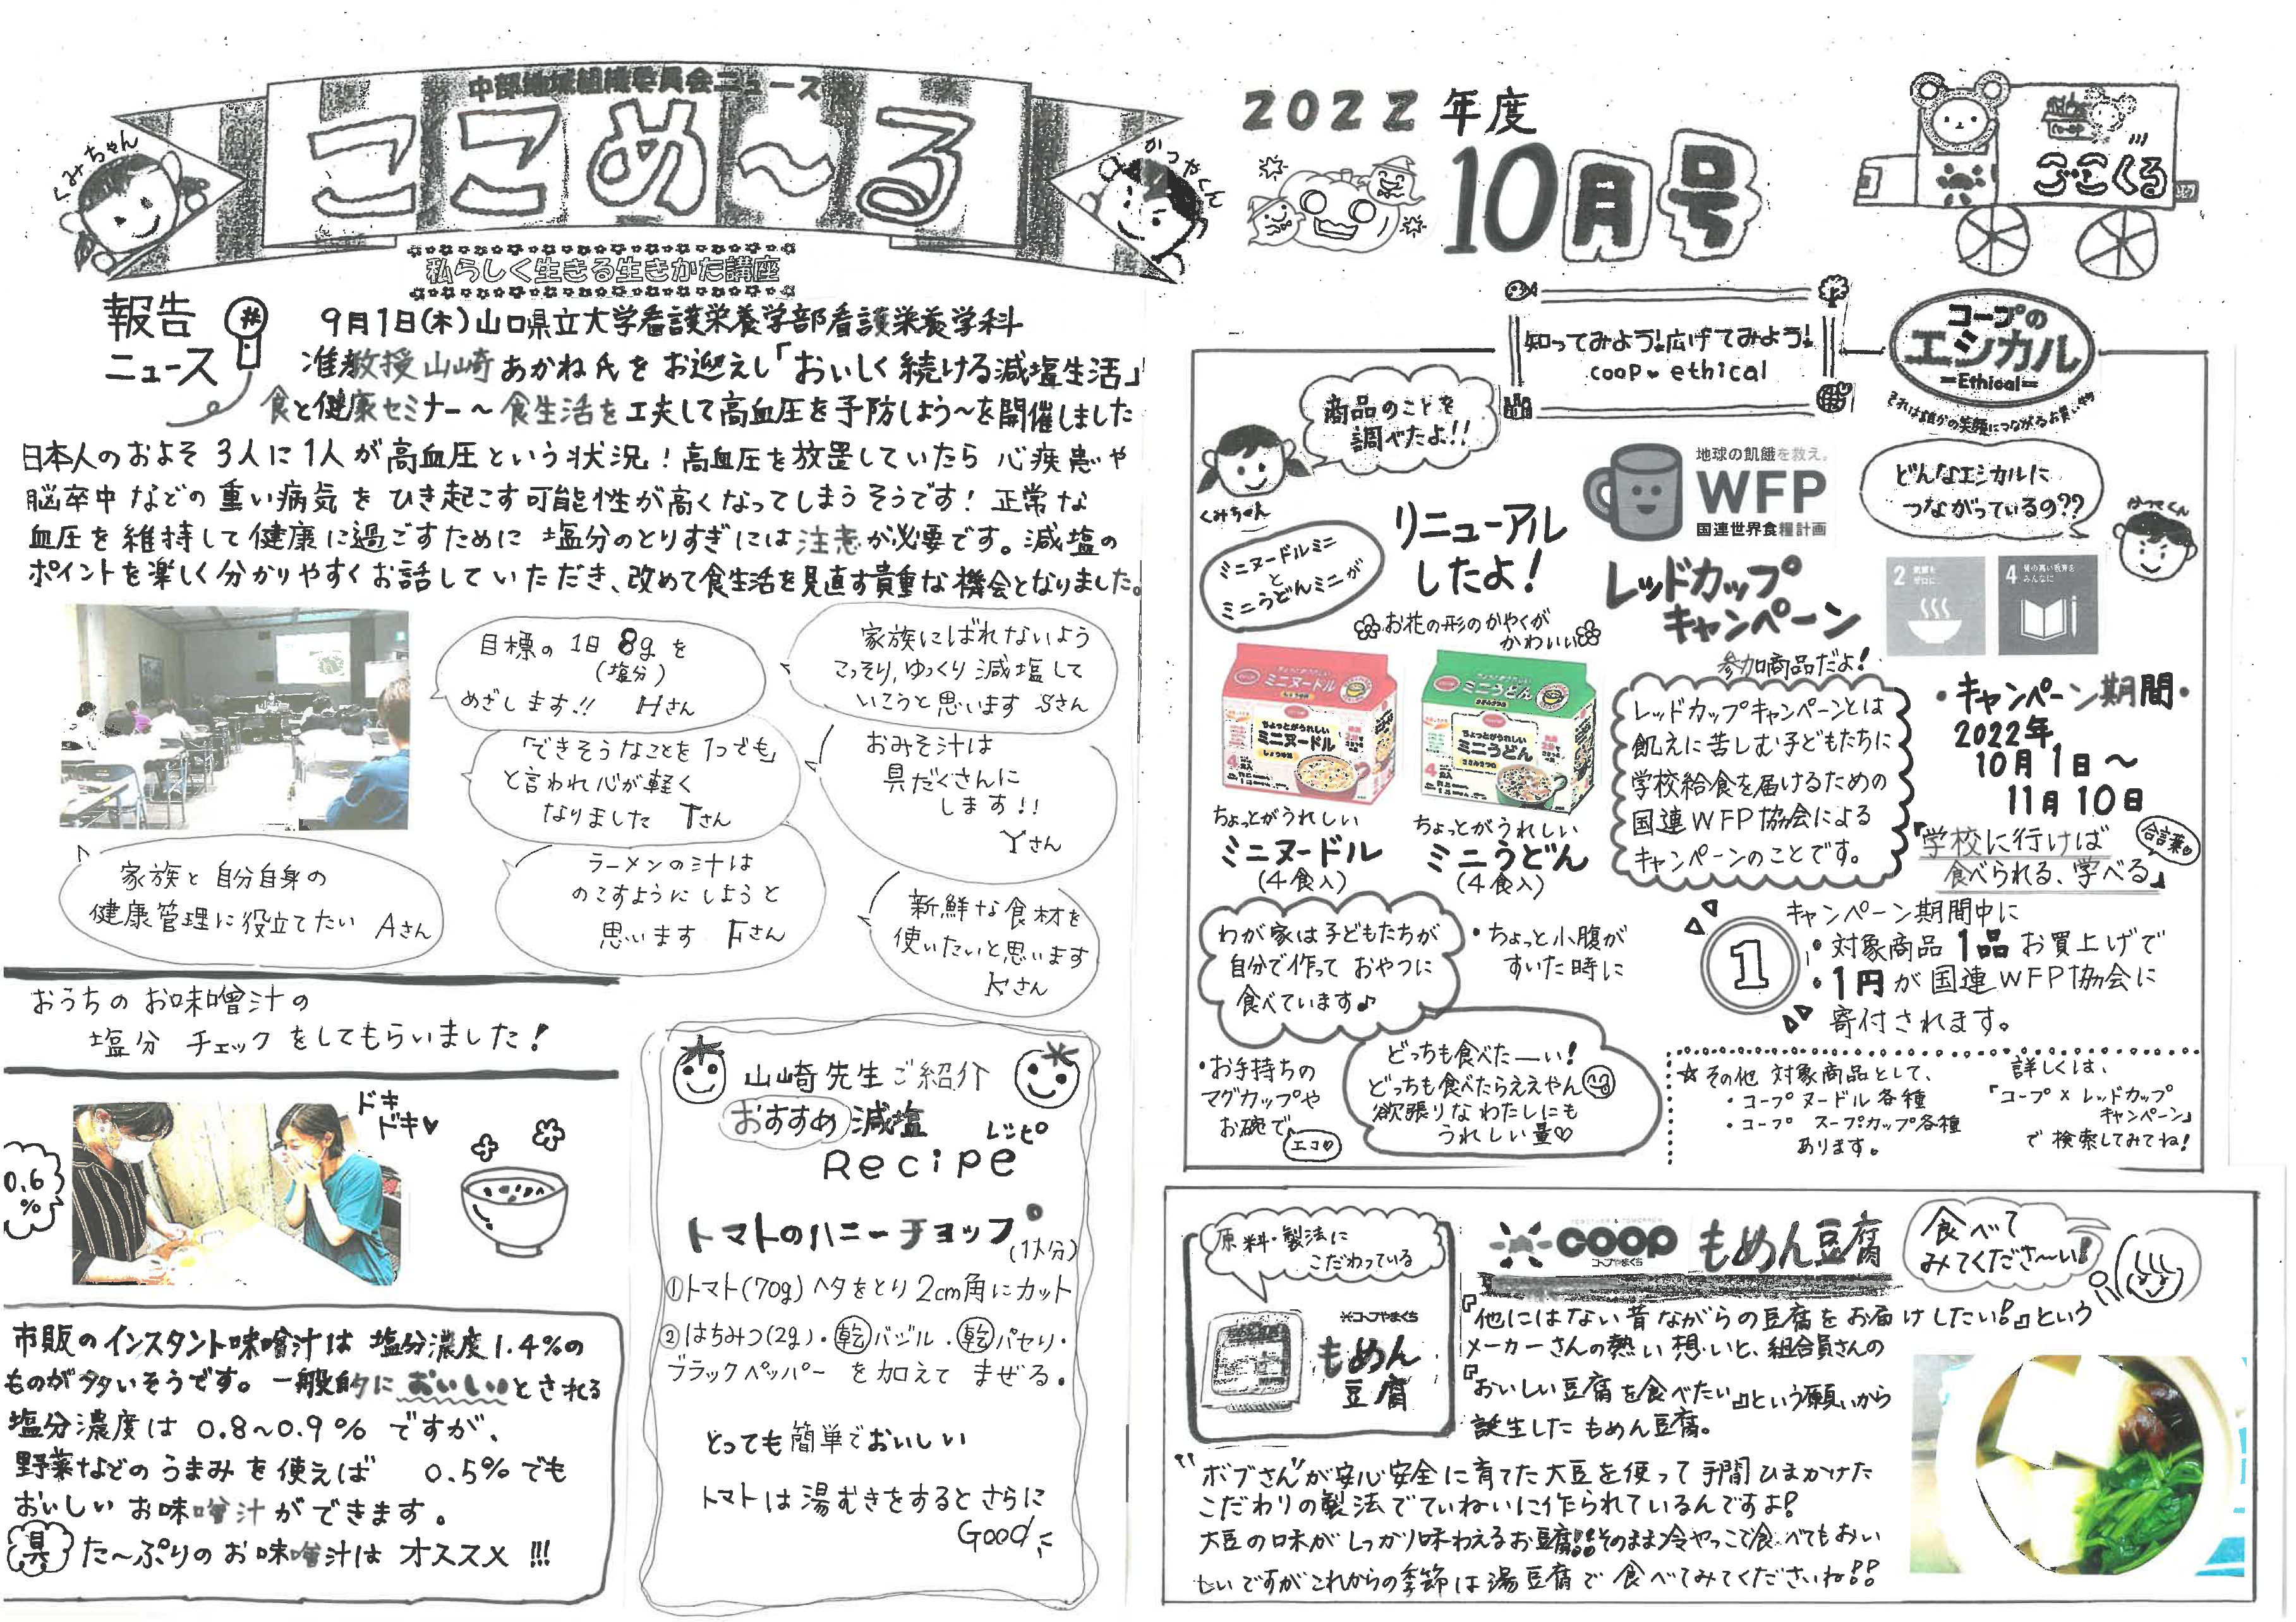 中部地域組織委員会ニュース
ここめ～る
くみちゃん
かつやくん
2022年度
10月号
ここくる
私らしく生きる生きかた講座
報告
ニュース
9月1日(木)山口県立大学看護栄養学部看護栄養学科
准教授山崎あかね氏をお迎えし「おいしく続ける減塩生活」
食と健康セミナー～食生活を工夫して高血圧を予防しよう～を開催しました
日本人のおよそ3人に1人が高血圧という状況！高血圧を放置していたら心疾患や
脳卒中などの重い病気をひき起こす可能性が高くなってしまうそうです！正常な
血圧を維持して健康に過ごすために塩分のとりすぎには注意が必要です。減塩の
ポイントを楽しく分かりやすくお話していただき、改めて食生活を見直す貴重な機会となりました。
目標の1日8gを
(塩分)
めざします!! Hさん
家族にばれないよう
こっそり,ゆっくり減塩して
いこうと思います Sさん
「できそうなことを1つでも」
と言われ心が軽く
なりました Tさん
おみそ汁は
具だくさんに
します!!
Yさん
家族と自分自身の
健康管理に役立てたい Aさん
ラーメンの汁は
のこすようにしようと
思います Fさん
新鮮な食材を
使いたいと思います
Kさん
おうちのお味噌汁の
塩分チェックをしてもらいました！
ドキ
ドキ♥
0.6
%
市販のインスタント味噌汁は塩分濃度1.4%の
ものが多いそうです。一般的においしいとされる
塩分濃度は0.8～0.9%ですが、
野菜などのうまみを使えば 0.5%でも
おいしいお味噌汁ができます。
具た～ぷりのお味噌汁はオススメ!!!
山崎先生ご紹介
おすすめ減塩
レシピ
Recipe
トマトのハニーチョップ
(1人分)
①トマト(70g)ヘタをとり2cm角にカット
②はちみつ(2g)・乾バジル・乾パセリ・
ブラックペッパーを加えてまぜる。
とっても簡単でおいしい
トマトは湯むきをするとさらに
Good
知ってみよう！広げてみよう！
coop♥ethical
コープの
エシカル
=Ethical=
それは誰かの笑顔につながるお買い物
商品のことを
調べたよ!!
くみちゃん
ミニヌードルミニ
と
ミニうどんミニが
リニューアル
したよ！
お花の形のかやくが
かわいい
地球の飢餓を救え。
WFP
国連世界食糧計画
レッドカップ
キャンペーン
参加商品だよ！
どんなエシカルに
つながっているの??
かつやくん
2 飢餓を
ゼロに
4 質の高い教育を
みんなに
ミニヌードル
ちょっとがうれしい
ミニヌードル
しょうゆ味
ミニうどん
ちょっとがうれしい
ミニうどん
ちょっとがうれしい
ミニヌードル
(4食入)
ちょっとがうれしい
ミニうどん
(4食入)
レッドカップキャンペーンとは
飢えに苦しむ子どもたちに
学校給食を届けるための
国連WFP協会による
キャンペーンのことです。
・キャンペーン期間・
2022年
10月1日～
11月10日
合言葉♡
「学校に行けば
食べられる、学べる」
キャンペーン期間中に
対象商品1品お買上げで
1円が国連WFP協会に
寄付されます。
1
わが家は子どもたちが
自分で作っておやつに
食べています♪
・ちょっと小腹が
すいた時に
・お手持ちの
マグカップや
お碗で
エコ♡
どっちも食べたーい！
どっちも食べたらええやん
欲張りなわたしにも
うれしい量♡
☆その他対象商品として、
・コープヌードル各種
・コープ スープカップ各種
あります。
詳しくは、
「コープ×レッドカップ
キャンペーン」
で検索してみてね！
原料・製法に
こだわっている
コープやまぐち
もめん
豆腐
COOP
コープやまぐち
もめん豆腐
食べて
みてくださ～い！
『他にはない昔ながらの豆腐をお届けしたい！』という
メーカーさんの熱い想いと、組合員さんの
『おいしい豆腐を食べたい』という願いから
誕生したもめん豆腐。
"ボブさん"が安心安全に育てた大豆を使って手間ひまかけた
こだわりの製法でていねいに作られているんですよ！
大豆の味がしっかり味わえるお豆腐!!そのまま冷やっこで食べてもおい
しいですがこれからの季節は湯豆腐で食べてみてくださいね!!